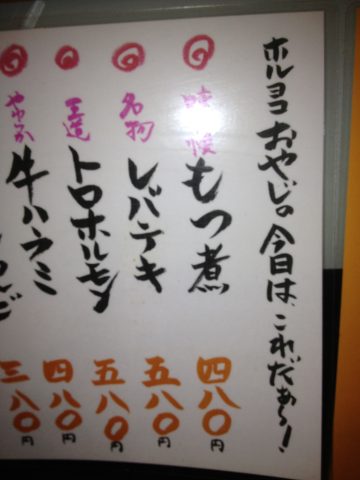 ホルヨコおやじの今日は、これだぁ～！
もつ煮
四八〇円
名物
レバテキ
五八〇円
王道
トロホルモン
五八〇円
やわらか
牛ハラミ
四八〇円
三八〇円